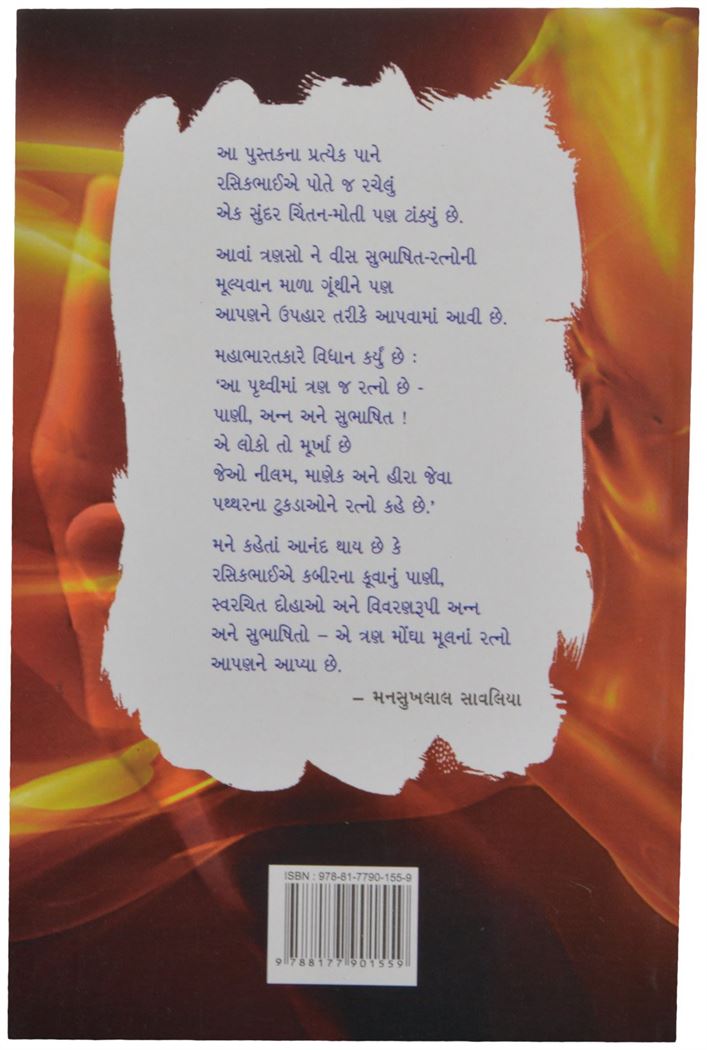 આ પુસ્તકના પ્રત્યેક પાને
રસિકભાઈએ પોતે જ રચેલું
એક સુંદર ચિંતન-મોતી પણ ટાંક્યું છે.
આવાં ત્રણસો ને વીસ સુભાષિત-રત્નોની
મૂલ્યવાન માળા ગૂંથીને પણ
આપણને ઉપહાર તરીકે આપવામાં આવી છે.
મહાભારતકારે વિધાન કર્યું છે :
‘આ પૃથ્વીમાં ત્રણ જ રત્નો છે -
પાણી, અન્ન અને સુભાષિત !
એ લોકો તો મૂર્ખા છે
જેઓ નીલમ, માણેક અને હીરા જેવા
પથ્થરના ટુકડાઓને રત્નો કહે છે.’
મને કહેતાં આનંદ થાય છે કે
રસિકભાઈએ કબીરના કૂવાનું પાણી,
સ્વરચિત દોહાઓ અને વિવરણરૂપી અન્ન
અને સુભાષિતો – એ ત્રણ મોંઘા મૂલનાં રત્નો
આપણને આપ્યા છે.
– મનસુખલાલ સાવલિયા
ISBN : 978-81-7790-155-9
9 788177 901559